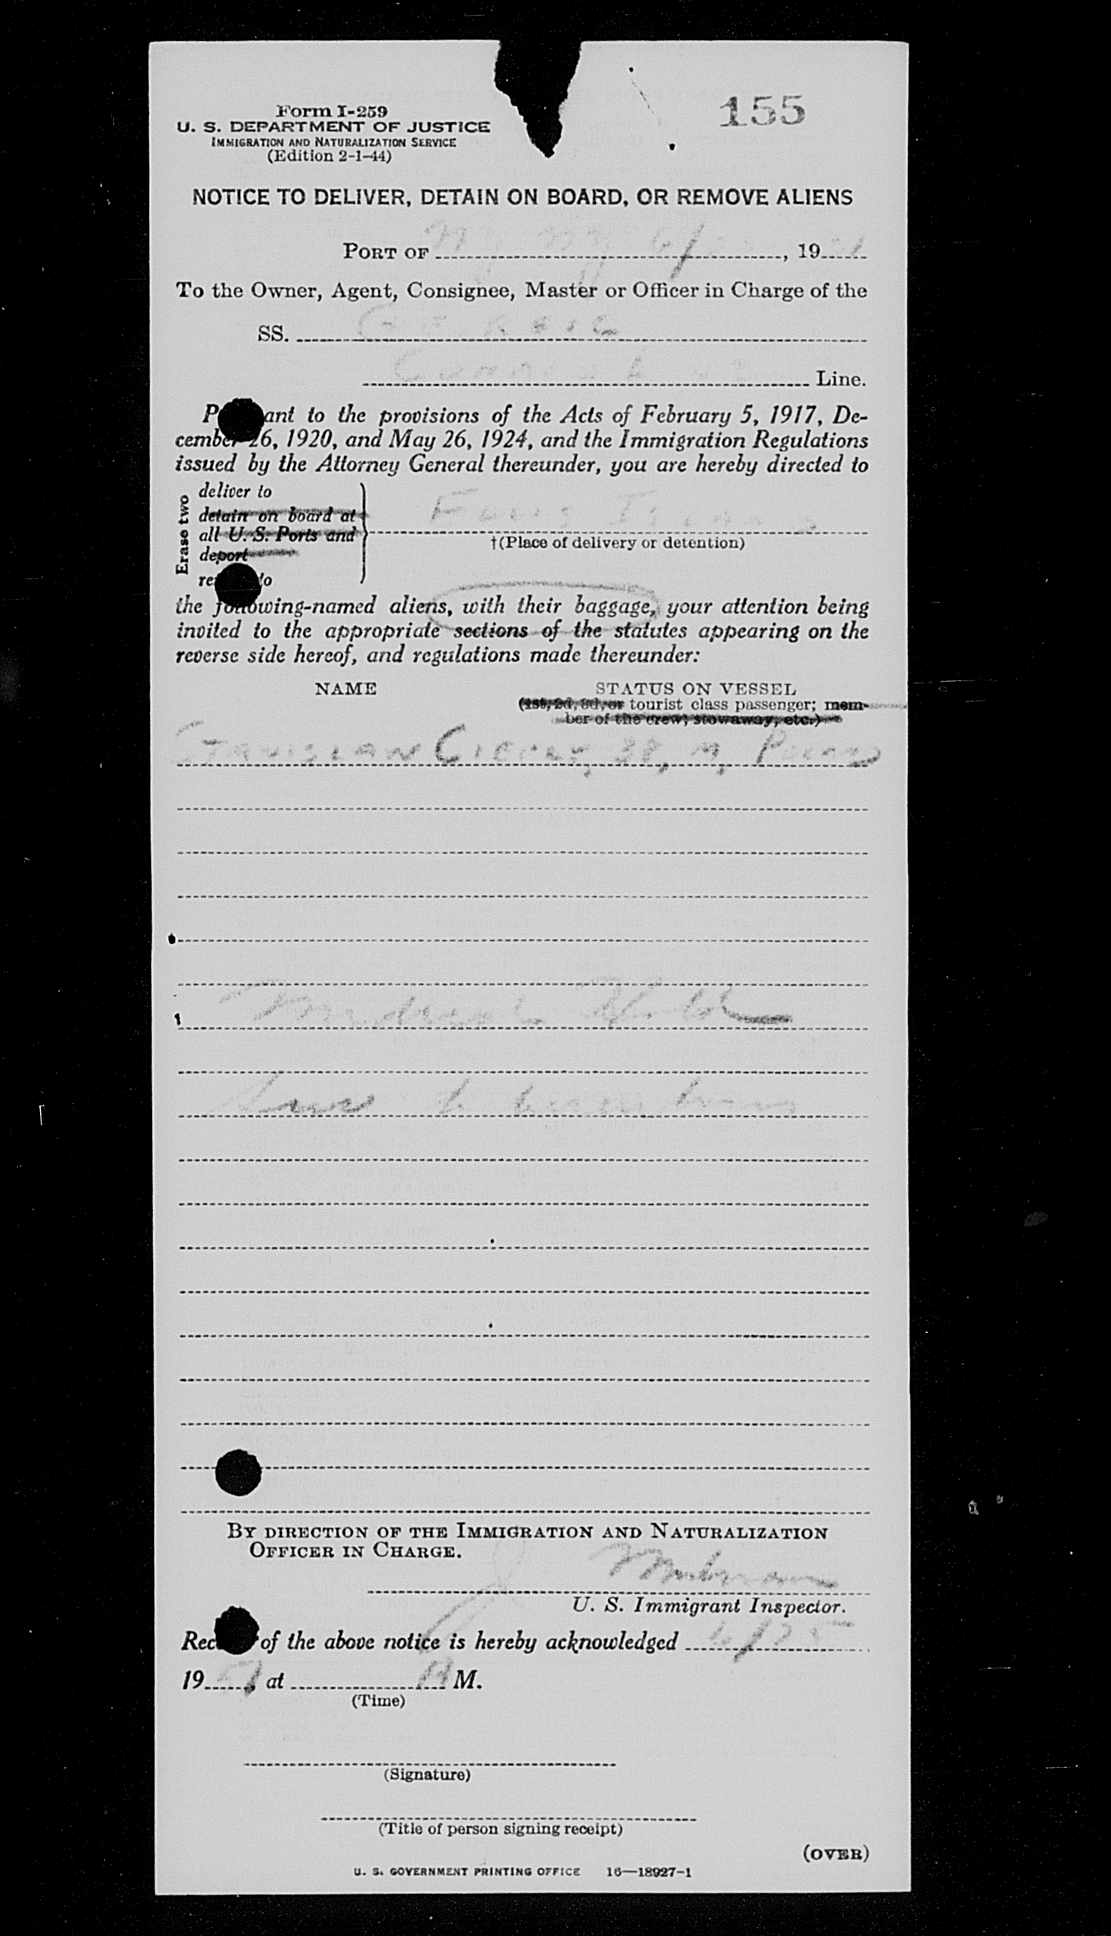 155
Form I-259
U. S. DEPARTMENT OF JUSTICE
IMMIGRATION AND NATURALIZATION SERVICE
(Edition 2-1-44)
NOTICE TO DELIVER, DETAIN ON BOARD, OR REMOVE ALIENS
PORT OF N.Y. N.Y. 6/ , 19
To the Owner, Agent, Consignee, Master or Officer in Charge of the
SS.
Line.
P ant to the provisions of the Acts of February 5, 1917, De-
cember 26, 1920, and May 26, 1924, and the Immigration Regulations
issued by the Attorney General thereunder, you are hereby directed to
Erase two
deliver to
detain on board at
all U. S. Ports and
deport
re to
Ellis Island
†(Place of delivery or detention)
the following-named aliens, with their baggage, your attention being
invited to the appropriate sections of the statutes appearing on the
reverse side hereof, and regulations made thereunder:
NAME STATUS ON VESSEL
(1st, 2d, 3d, or tourist class passenger; mem-
ber of the crew; stowaway, etc.)
STANISLAW 38, M, POLAND
Medical Hold
BY DIRECTION OF THE IMMIGRATION AND NATURALIZATION
OFFICER IN CHARGE.
U. S. Immigrant Inspector.
Rec of the above notice is hereby acknowledged 6/25
19 , at M.
(Time)
(Signature)
(Title of person signing receipt)
(OVER)
U. S. GOVERNMENT PRINTING OFFICE 16—18927-1